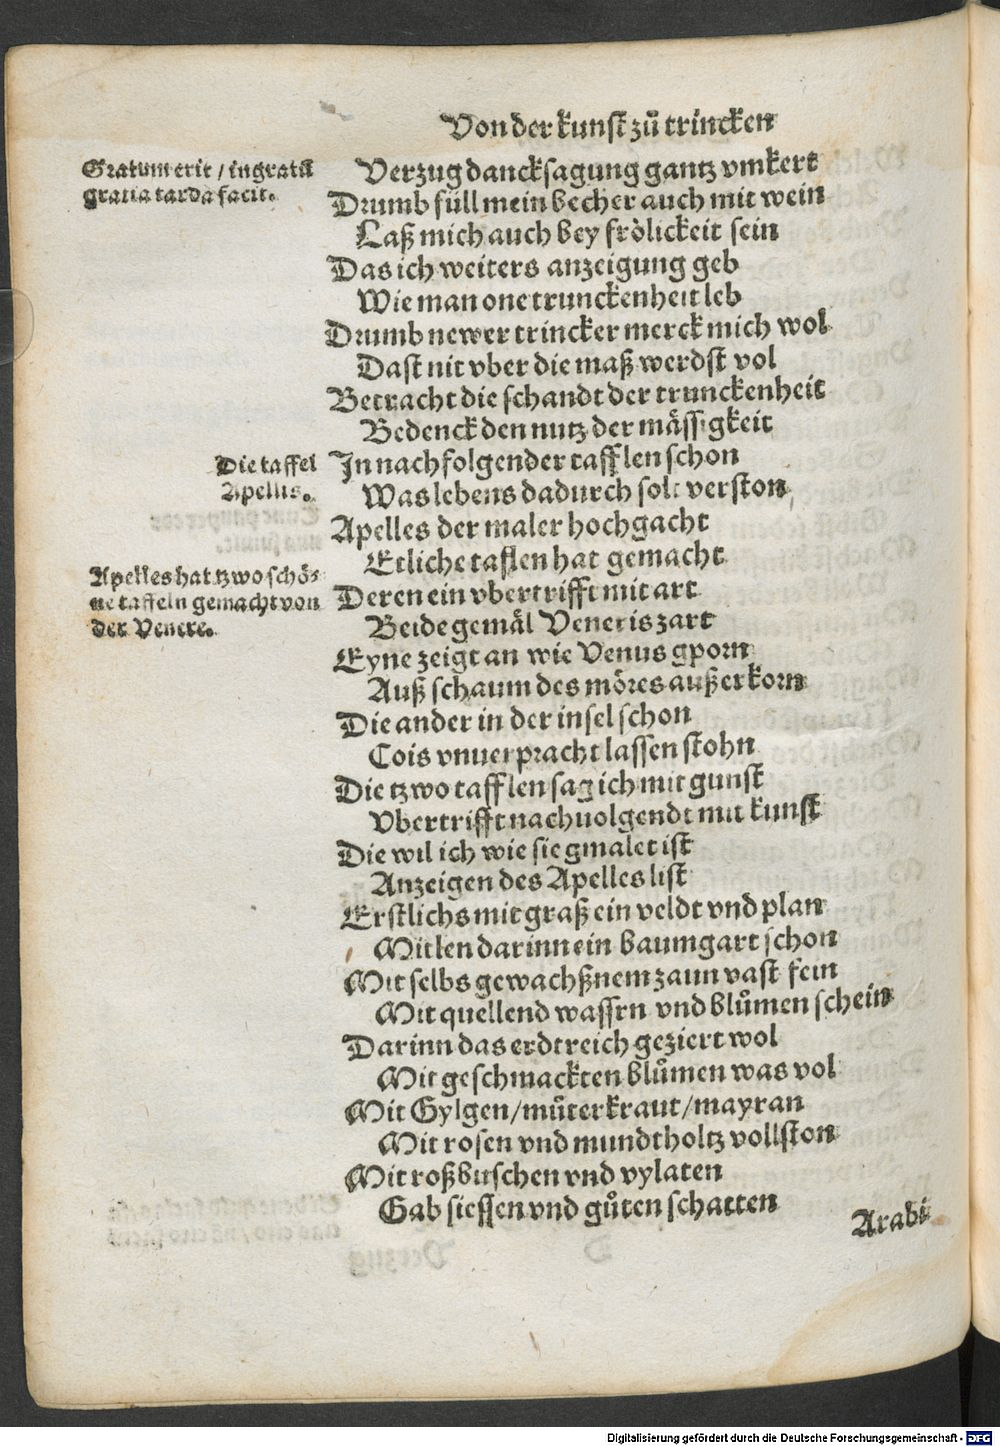 Von der kunst zů trincken
Gratum erit / ingratū
gratia tarda facit.
Verzug dancksagung gantz vmkert
Drumb füll mein becher auch mit wein
Laß mich auch bey frölickeit sein
Das ich weiters anzeigung geb
Wie man one trunckenheit leb
Drumb newer trincker merck mich wol
Dast nit vber die maß werdst vol
Betracht die schandt der trunckenheit
Bedenck den nutz der mässigkeit
Die taffel
Apellis.
In nachfolgender tafflen schon
Was lebens dadurch solt verston
Apelles der maler hochgacht
Etliche taflen hat gemacht
Apelles hat tzwo schö-
ne taffeln gemacht von
der Venere.
Deren ein vbertrifft mit art
Beide gemäl Veneris zart
Eyne zeigt an wie Venus gporn
Auß schaum des möres außerkorn
Die ander in der insel schon
Cois vnuerpracht lassen stohn
Die tzwo tafflen sag ich mit gunst
Vbertrifft nachuolgendt mit kunst
Die wil ich wie sie gmalet ist
Anzeigen des Apelles list
Erstlichs mit graß ein veldt vnd plan
Mitlen darinn ein baumgart schon
Mit selbs gewachßnem zaun vast fein
Mit quellend wassrn vnd blůmen schein
Darinn das erdtreich geziert wol
Mit geschmackten blůmen was vol
Mit Gylgen / můterkraut / mayran
Mit rosen vnd mundtholtz vollston
Mit roßbuschen vnd vylaten
Gab siessen vnd gůten schatten
Arabi
Digitalisierung gefördert durch die Deutsche Forschungsgemeinschaft - DFG